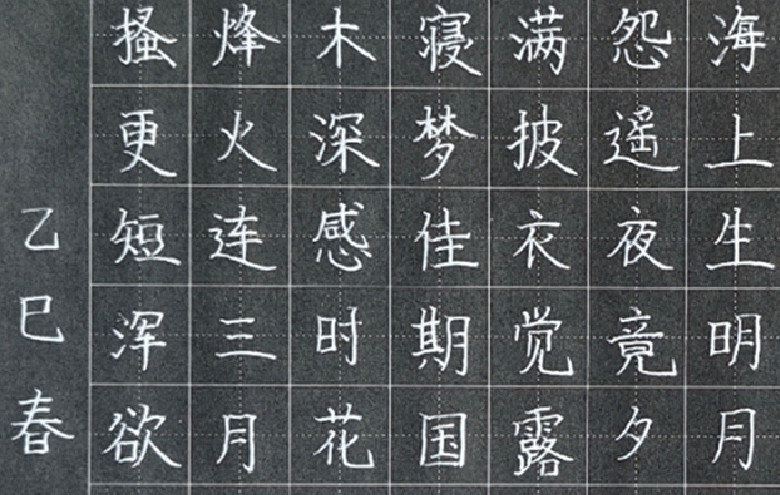 海上生明月
怨遥夜竟夕
满披衣觉露
寝梦佳期国
木深感时花
烽火连三月
搔更短浑欲
乙巳春